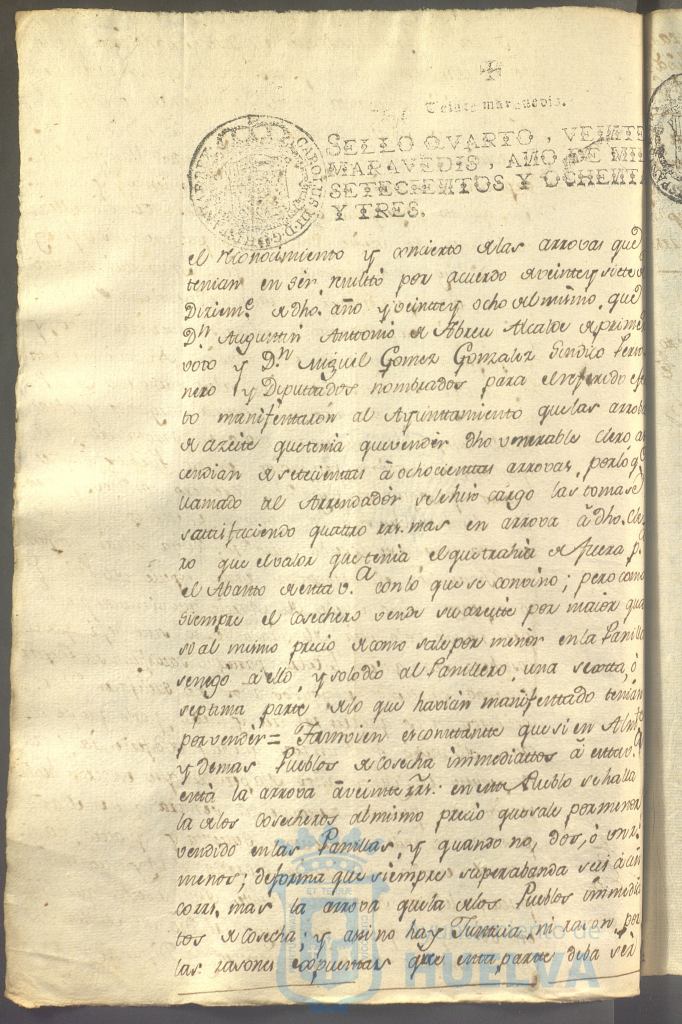 Veinte maravedis.
SELLO QVARTO, VEINTE
MARAVEDIS, AÑO DE MIL
SETECIENTOS Y OCHENTA
Y TRES.
CAROLUS III D G HISPANIAR REX
el reconocimiento y concierto de las arrovas que
tenian en ser, resultó por acuerdo de veinte y siete de
Diziem.e de dho. año y veinte y ocho del mismo, que
D.n Augustin Anttonio de Abreu Alcalde de primer
voto y D.n Miguel Gomez Gonzalez Sindico Perso
nero y Diputtados nombrados para el referido efec
to manifestarón al Ayunttamiento que las arrobas
de azeite que tenia que vender dho venerable clero as
cendian de setecientas à ochocientas arrovas, por lo q.e
llamado al Arrendador se le hizo cargo las tomase
satisfaciendo quattro rrs. mas en arrova à dho. Cle
ro que el valor que tenia el que trahia de fuera p.a
el Abasto de esta v.a con lo que se convino; pero como
siempre el cosechero vende su azeite por maior qua
si al mismo precio de como sale por menor en la Panilla
se nego a ello y solo dio al Panillero, una sexta, ò
septima parte de lo que havian manifestado tenian
por vender = Tamvien es constante que si en Almte
y demas Pueblos de cosecha immediattos à esta v.a
està la arrova à veinte rrs. en este Pueblo se halla
la de los cosecheros al mismo precio que sale por menor
vendido en las Panillas, y quando no, dos, ò un r.l
menos; de forma que siempre superabanda seis à cin
co rrs. mas la arrova que la de los Pueblos immedia
tos de cosecha; y asi no hay Justicia, ni razon, por
las rasones expuestas que esta parte deba ser
HUELVA